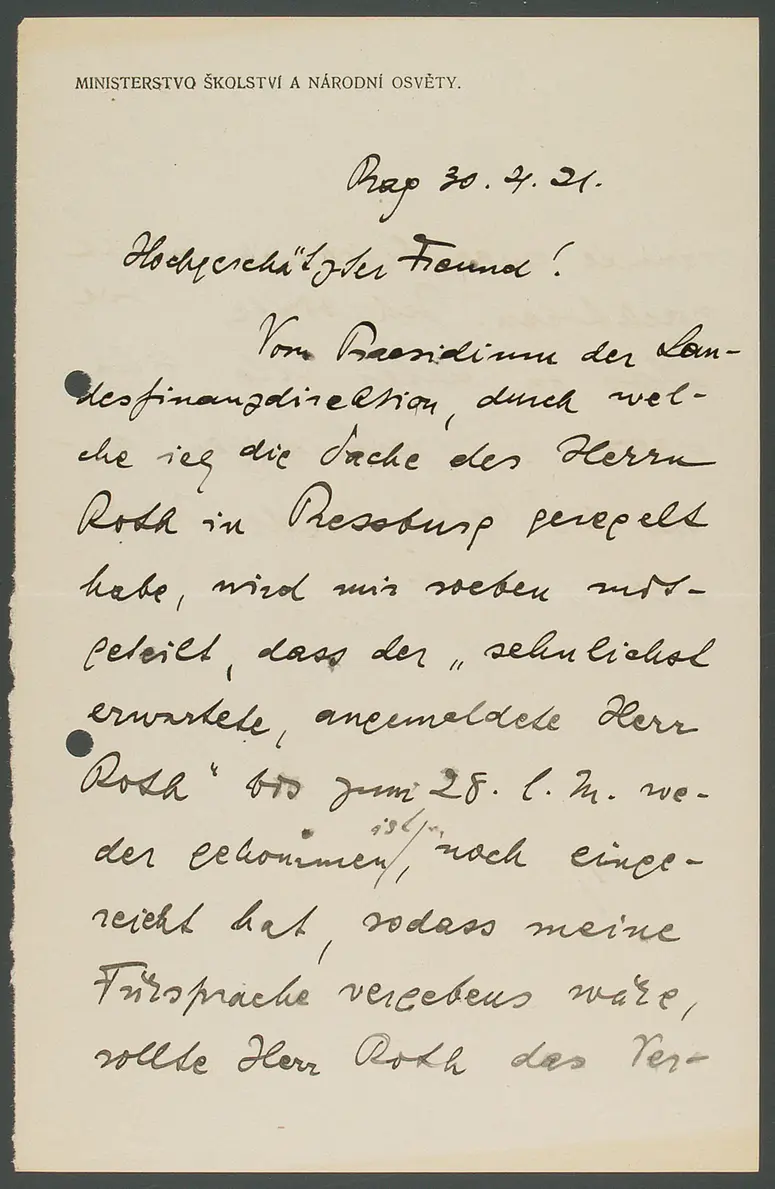 MINISTERSTVO ŠKOLSTVÍ A NÁRODNÍ OSVĚTY.
Prag 30. 4. 21.
Hochgeschätzter Freund!
Vom Praesidium der Lan-
desfinanzdirektion, durch wel-
che ich die Sache des Herrn
Roth in Pressburg geregelt
habe, wird mir soeben mit-
geteilt, dass der „sehnlichst
erwartete, angemeldete Herr
Roth" bis zum 28. l. M. we-
der gekommen ist, noch einge-
reicht hat, sodass meine
Fürsprache vergebens wäre,
sollte Herr Roth das Ver-